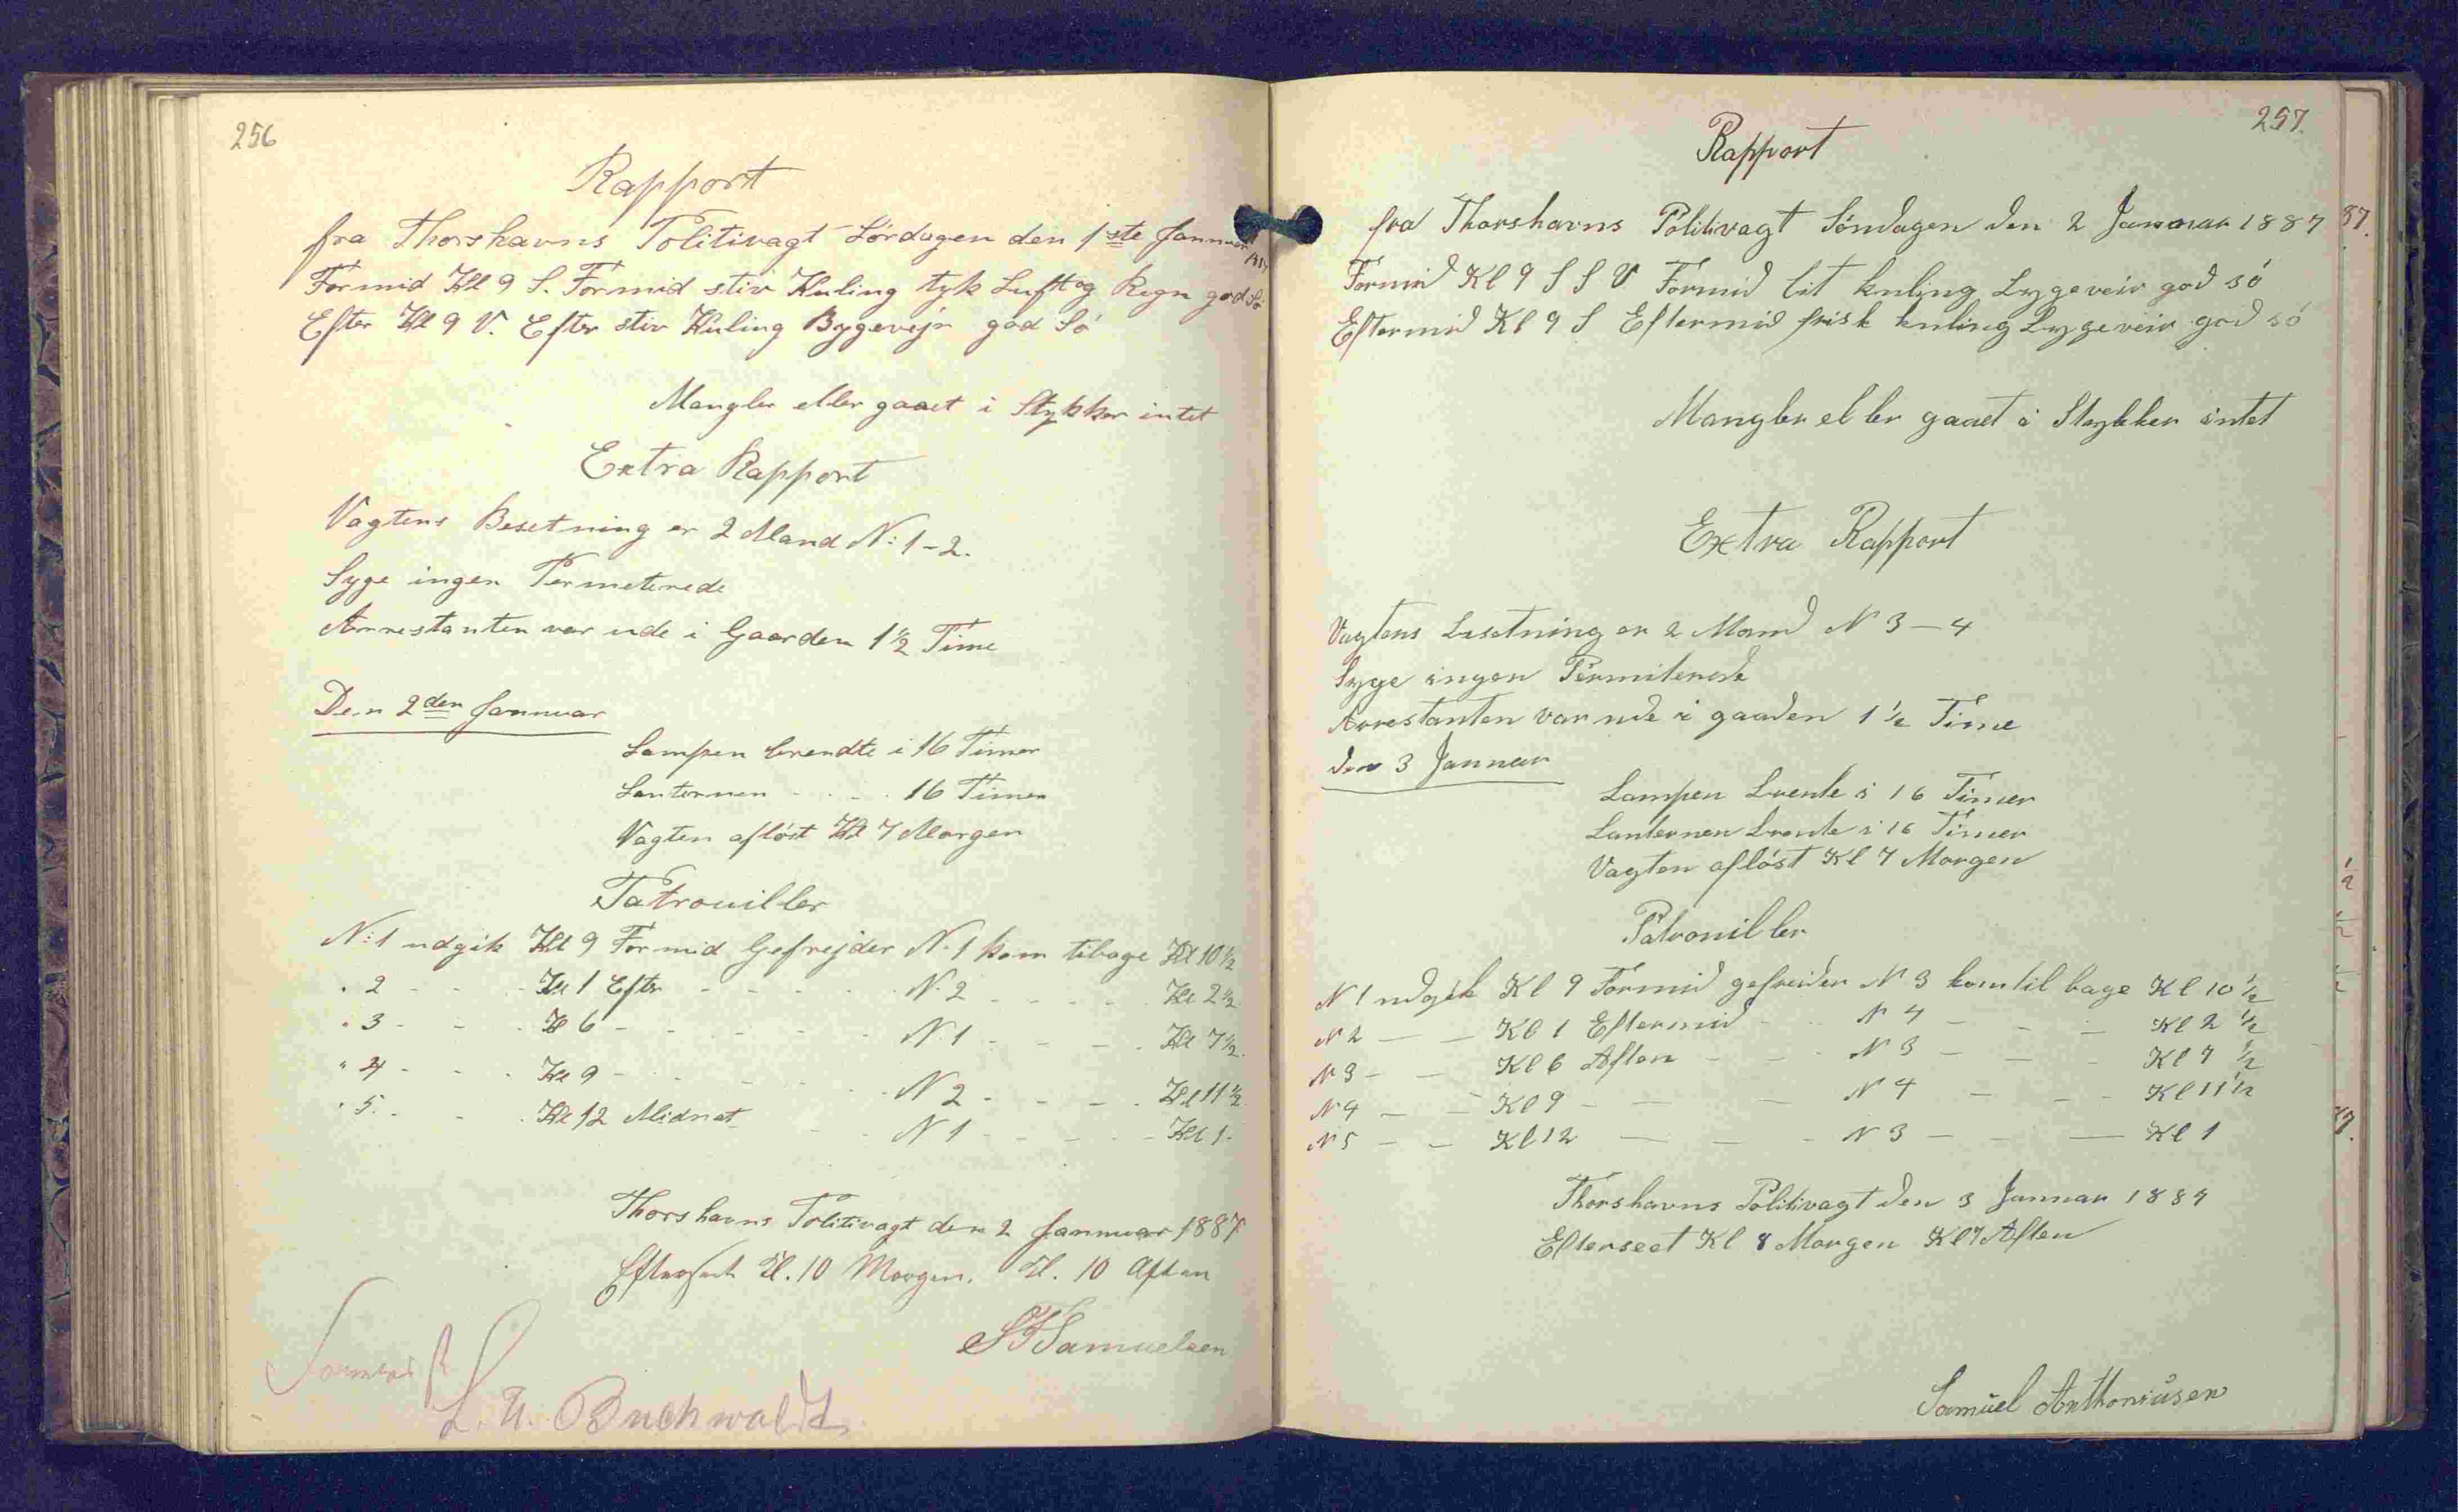 256
Rapport
fra Thorshavns Politivagt Lördagen den 1ste Januar
Formid Kl 9 S. Formid stiv Kuling tyk Luft og Regn god Sö
Efter Kl 9 V. Efter stiv Kuling Bygevejr god Sö
Mangler eller gaaet i Stykker intet
Extra Rapport
Vagtens Besetning er 2 Mand N: 1-2.
Syge ingen Permeterede
Arrestanten var ude i Gaarden 1 1/2 Time
Den 2den Januar
Lampen brendte i 16 Timer
Lanternen - - - 16 Timer
Vagten aflöst Kl 7 Morgen
Patrouiller
N: 1 udgik Kl 9 Formid Gefrejder N. 1 kom tilbage Kl 10 1/2
" 2 - - - Kl 1 Efter - - - - N. 2 - - - - Kl 2 1/2
" 3 - - - Kl 6 - - - - - N. 1 - - - - Kl 7 1/2
" 4 - - - Kl 9 - - - - - N 2 - - - - Kl 11 1/2
" 5. - - - Kl 12 Midnat - - N 1 - - - - Kl 1.
Thorshavns Politivagt den 2 Januar 1887
Efterseet Kl. 10 Morgen. Kl. 10 Aften
Samuelsen
L. U. Buchwaldt
257.
Rapport
fra Thorshavns Politivagt Söndagen den 2 Januar 1887
Formid Kl 9 S S V Formid lit kuling Bygeveir god só
Eftermid Kl 9 S Eftermid frisk kuling Bygeveir god só
Mangler eller gaaet i Stykker intet
Extra Rapport
Vagtens besetning er 2 Mand N 3 - 4
Syge ingen Permiterede
Arrestanten var ude i gaaden 1 1/2 Time
den 3 Januar
Lampen brente i 16 Timer
Lanternen brente i 16 Timer
Vagten aflöst Kl 7 Morgen
Patrouiller
N 1 udgik Kl 9 Formid gefreider N 3 kom til bage Kl 10 1/2
N 2 — — Kl 1 Eftermid - - N 4 — - — Kl 2 1/2
N 3 - — Kl 6 Aften - - - N 3 — — - Kl 7 1/2
N 4 — — Kl 9 - — — N 4 — - - Kl 11 1/2
N 5 - — Kl 12 — — - N 3 — - — Kl 1
Thorshavns Politivagt den 3 Januar 1887
Efterseet Kl 8 Morgen Kl 7 Aften
Samuel Anthoniusen